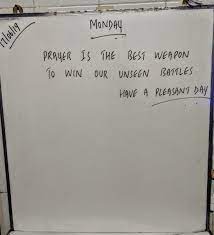 17/06/19
MONDAY
PRAYER IS THE BEST WEAPON
TO WIN OUR UNSEEN BATTLES
HAVE A PLEASANT DAY